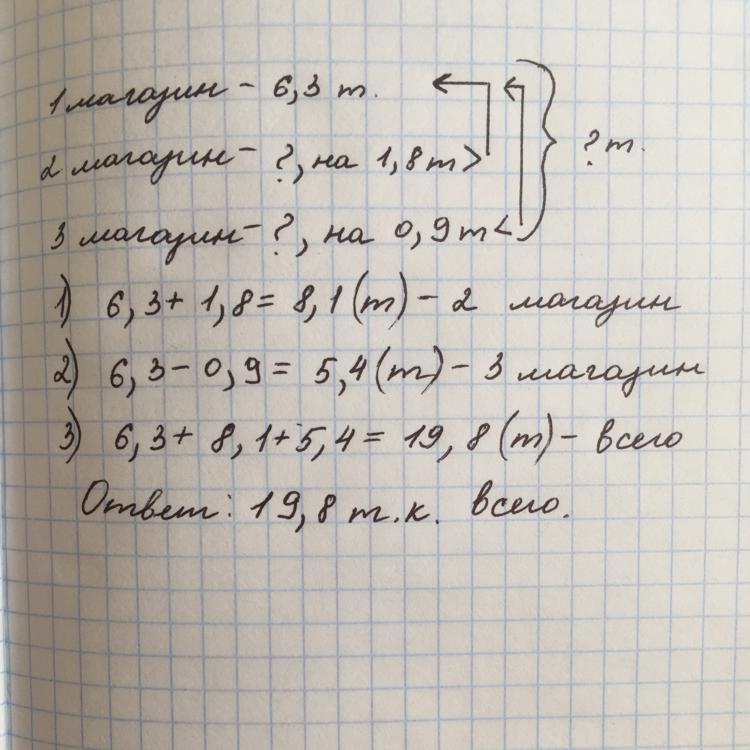 1 магазин - 6,3 т.
2 магазин - ?, на 1,8 т >
3 магазин - ?, на 0,9 т <
? т.
1) 6,3 + 1,8 = 8,1 (т) - 2 магазин
2) 6,3 - 0,9 = 5,4 (т) - 3 магазин
3) 6,3 + 8,1 + 5,4 = 19,8 (т) - всего
Ответ: 19,8 т.к. всего.